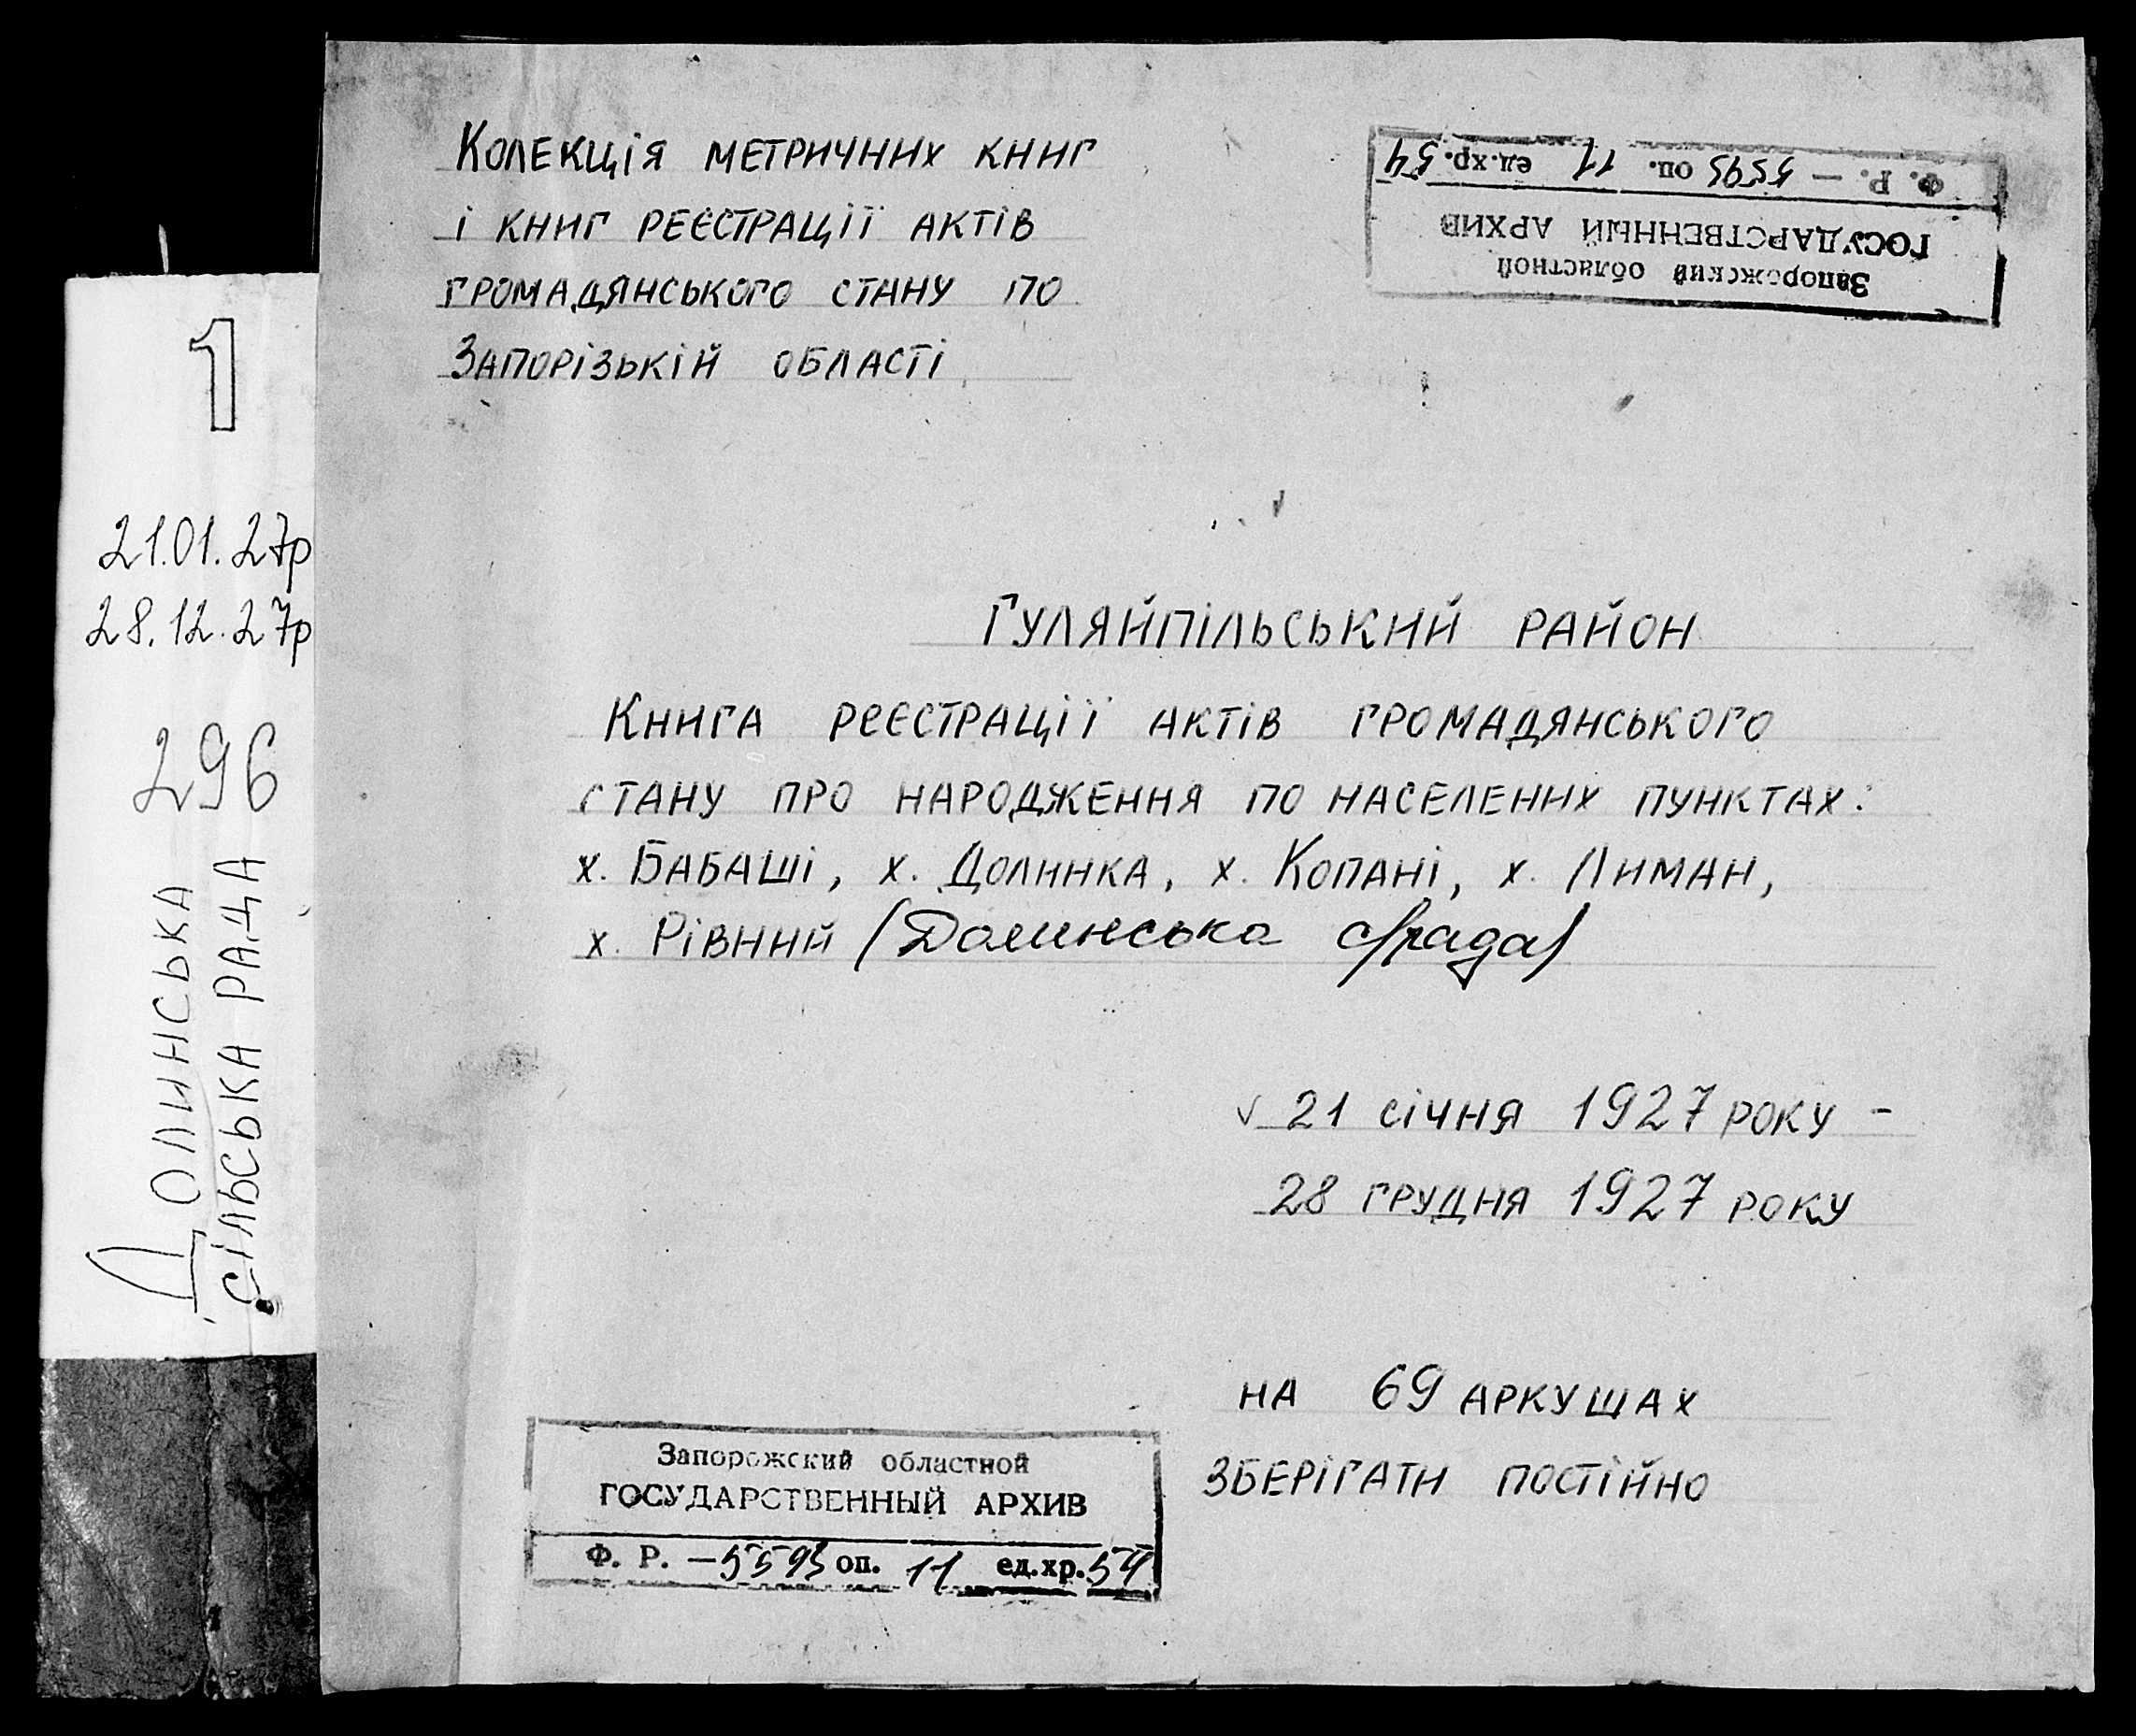 1
21.01.27р
28.12.27р
296
Долинська
сільська рада
Колекція метричних книг
і книг реєстрації актів
громадянського стану по
Запорізькій області
Запорожский областной
ГОСУДАРСТВЕННЫЙ АРХИВ
Ф. Р. — 5593 оп. 11 ед.хр. 54
Гуляйпільський район
Книга реєстрації актів громадянського
стану про народження по населених пунктах:
х. Бабаші, х. Долинка, х. Копані, х. Лиман,
х. Рівний (Долинська с/рада)
21 січня 1927 року -
28 грудня 1927 року
на 69 аркушах
зберігати постійно
Запорожский областной
ГОСУДАРСТВЕННЫЙ АРХИВ
Ф. Р. — 5593 оп. 11 ед.хр. 54